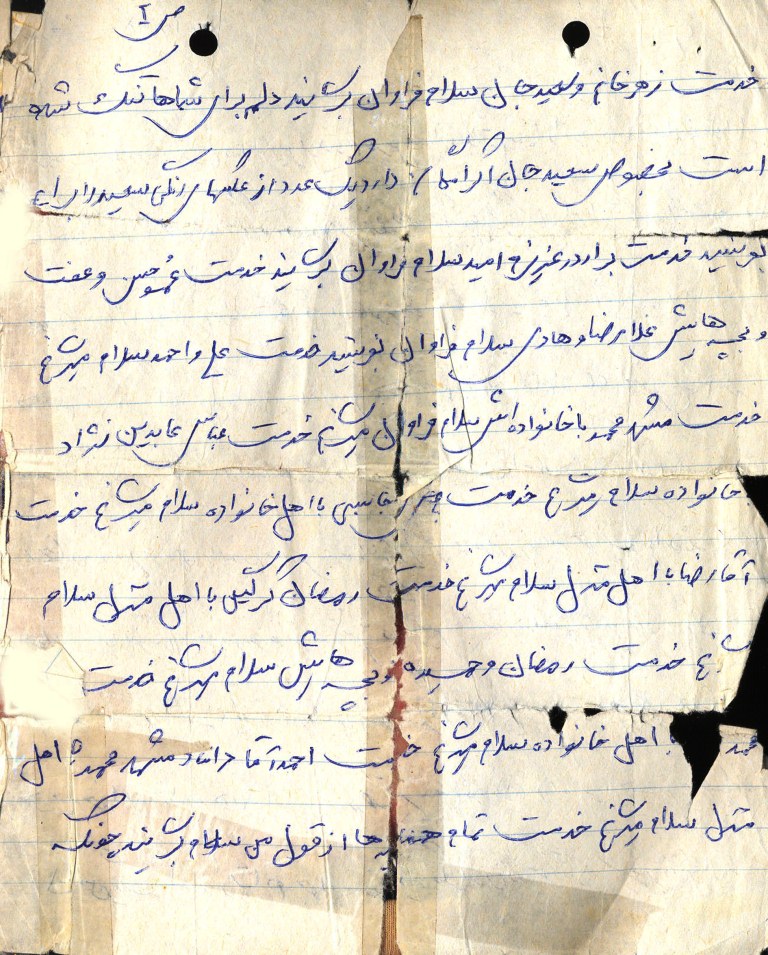 ص ۲
خدمت زهرخانم و سعیدجان سلام فراوان برسانید دلم برای شماها تنگ شده
است مخصوص سعید جان اگر امکان دارد یک عدد از عکسهای رنگی سعید را برایم
بفرستید خدمت برادر عزیزم امید سلام فراوان برسانید خدمت عمو حسن و عفت
و بچه هایش غلامرضا و هادی سلام فراوان بفرستید خدمت علی و احمد سلام میرسانم
خدمت مشهد محمد با خانواده اش سلام فراوان میرسانم خدمت عباس عابدین نژاد
با خانواده سلام میرسانم خدمت عباسی با اهل خانواده سلام میرسانم خدمت
آقا رضا با اهل منزل سلام میرسانم خدمت رمضان گرگین با اهل منزل سلام
میرسانم خدمت رمضان و حمیده و بچه هایش سلام میرسانم خدمت
محمد با اهل خانواده سلام میرسانم خدمت احمد آقا داماد مشهد محمد با اهل
منزل سلام میرسانم خدمت تمام همسایه ها از قول من سلام برسانید چونکه